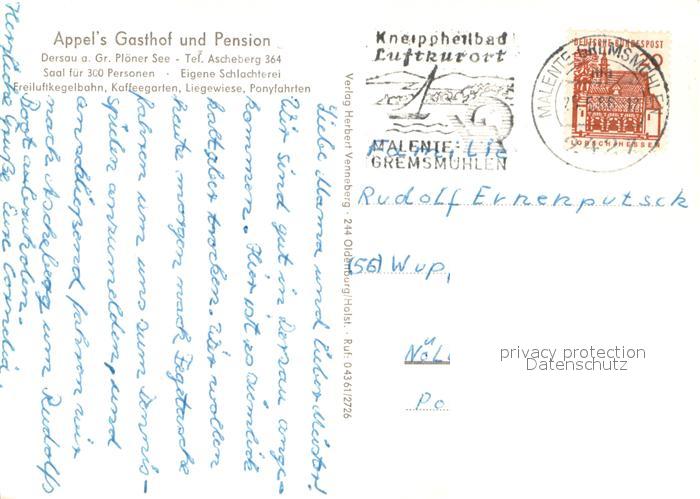 Appel's Gasthof und Pension
Dersau a. Gr. Plöner See - Tel. Ascheberg 364
Saal für 300 Personen · Eigene Schlachterei
Freiluftkegelbahn, Kaffeegarten, Liegewiese, Ponyfahrten
Liebe Mama und
Wir sind gut in Dersau ange-
kommen. Hier ist es ziemlich
kalt, aber trocken. Wir wollen
heute morgen nach
fahren um uns zum Tennis-
spielen anzumelden, und
anschließend fahren wir
nach Ascheberg um Rudolfs
Post abzuholen.
Herzliche Grüße Eure Cornelia.
Verlag Herbert Venneberg · 244 Oldenburg/Holst. · Ruf: 04361/2726
Kneippheilbad
Luftkurort
MALENTE-
GREMSMÜHLEN
MALENTE-GREMSMÜHLEN
DEUTSCHE BUNDESPOST
LORSCH/HESSEN
Familie
Rudolf Ernenputsch
(56) Wup
privacy protection
Datenschutz
Po